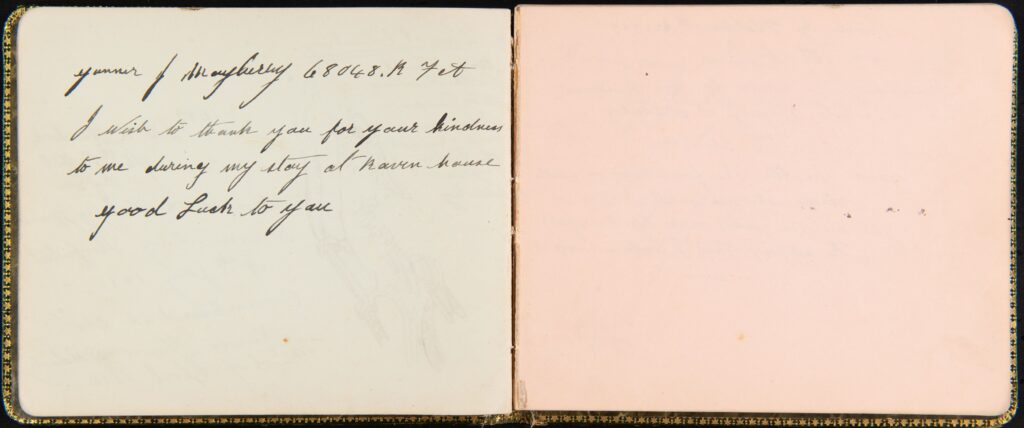 gunner J Mayberry 68048. R F A
I wish to thank you for your kindness
to me during my stay at Raven house
good Luck to you